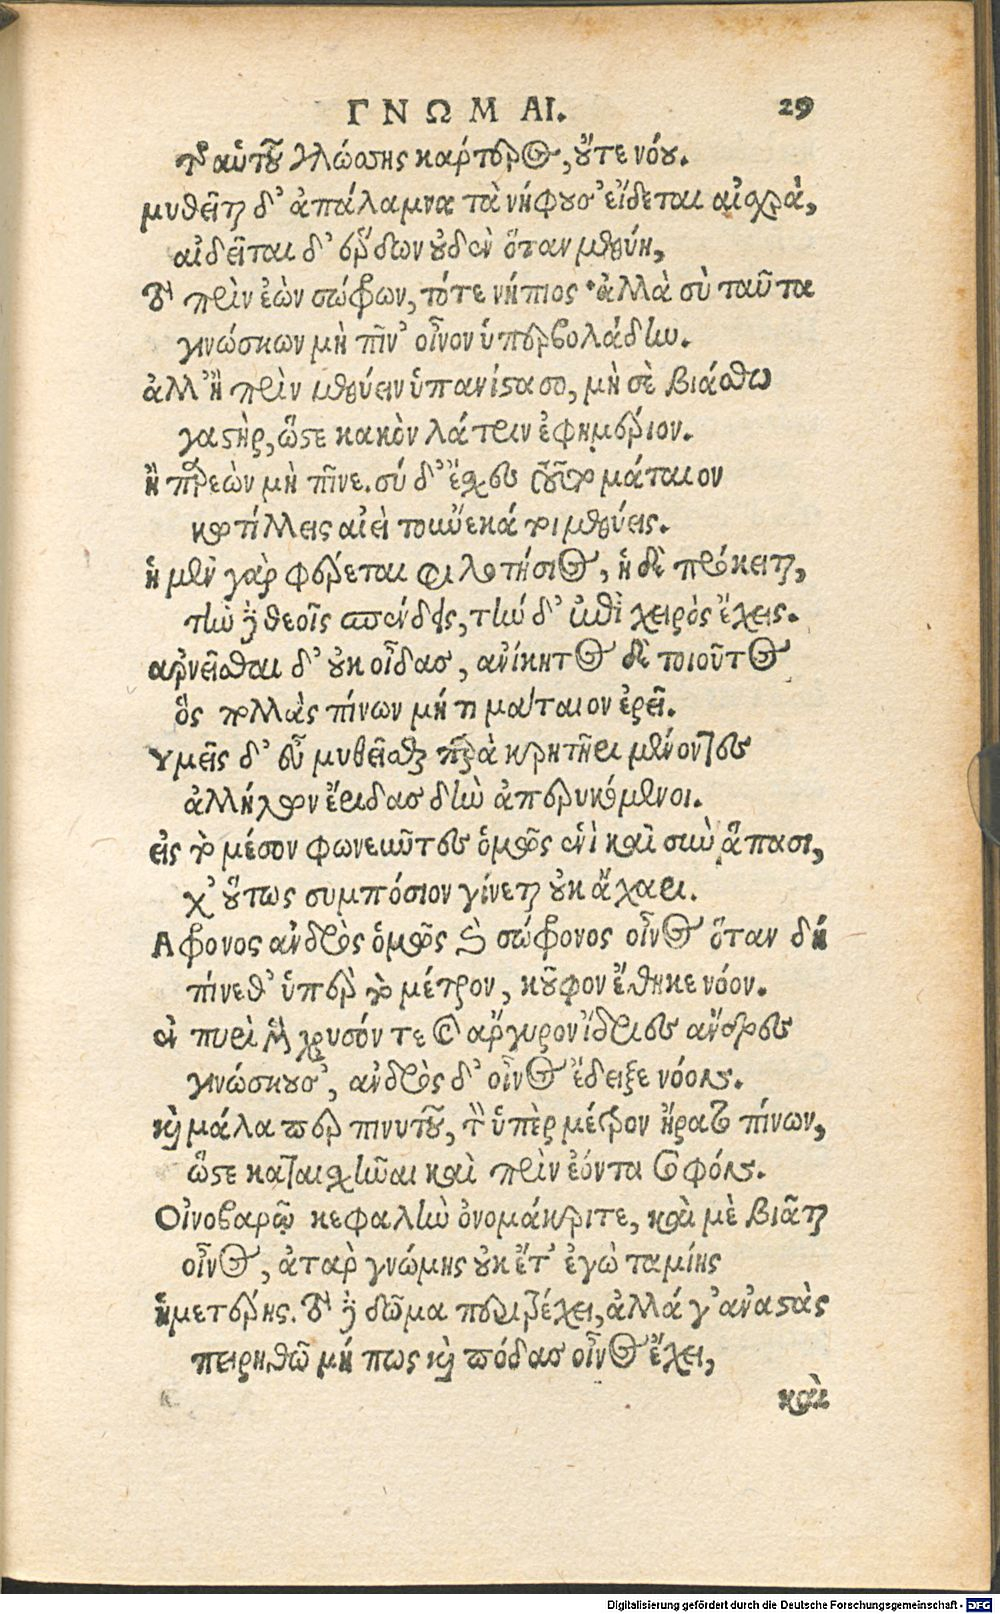 ΓΝΩΜΑΙ. 29
τῆς αὑτοῦ γλώσσης καρτερὸς, οὔτε νόου.
μυθεῖται δ᾽ ἀπάλαμνα τὰ νήφουσ᾽ εἴδεται αἰσχρὰ,
αἰδεῖται δ᾽ ἔρδων οὐδὲν ὅταν μεθύῃ,
τὸ πρὶν ἐὼν σώφρων, τότε νήπιος· ἀλλὰ σὺ ταῦτα
γινώσκων μὴ πῖν᾽ οἶνον ὑπερβολάδην.
ἀλλ᾽ ἢ πρὶν μεθύειν ὑπανίστασο, μὴ σὲ βιάσθω
γαστὴρ, ὥστε κακὸν λάτριν ἐφημέριον.
ἢ παρεὼν μὴ πῖνε. σύ δ᾽ ἔγχεε τοῦτο μάταιον
κωτίλλεις αἰεὶ τοκοὔεκά τρι μεθύεις.
ἡ μὲν γὰρ φέρεται φιλοτήσιος, ἡ δὲ πρόκειται,
τὴν δὲ θεοῖς σπένδεις, τὴν δ᾽ ἐπὶ χειρὸς ἔχεις.
ἀρνεῖσθαι δ᾽ οὐκ οἶδας, ἀνίκητος δὲ τοιοῦτος
ὃς πολλὰς πίνων μή τι μάταιον ἐρεῖ.
Υμεῖς δ᾽ εὖ μυθεῖσθε παρὰ κρητῆρι μένοντες
ἀλλήλων ἔριδας δὴν ἀπερυκόμενοι.
εἰς τὸ μέσον φωνεῦντες ὁμῶς ἑνὶ καὶ σὺν ἅπασι,
χ᾽ οὕτως συμπόσιον γίνεται οὐκ ἄχαρι.
Αφρονος ἀνδρὸς ὁμῶς καὶ σώφρονος οἶνος ὅταν δὴ
πίνεθ᾽ ὑπὲρ τὸ μέτρον, κοῦφον ἔθηκε νόον.
ἐν πυρὶ μὲν χρυσόν τε καὶ ἄργυρον ἴδριες ἄνδρες
γινώσκουσ᾽, ἀνδρὸς δ᾽ οἶνος ἔδειξε νόον.
καὶ μάλα περ πινυτοῦ, τὸν ὑπὲρ μέτρον ἤρατο πίνων,
ὥστε καταισχῦναι καὶ πρὶν ἐόντα σοφόν.
Οἰνοβαρῶ κεφαλὴν ὀνομάκριτε, καὶ μὲ βιᾶται
οἶνος, ἀτὰρ γνώμης οὐκ ἔτ᾽ ἐγὼ ταμίης
ἡμετέρης. τὸ δὲ δῶμα περιτρέχει, ἀλλά γ᾽ ἀναστὰς
πειρηθῶ μή πως καὶ πόδας οἶνος ἔχει,
καὶ
Digitalisierung gefördert durch die Deutsche Forschungsgemeinschaft - DFG